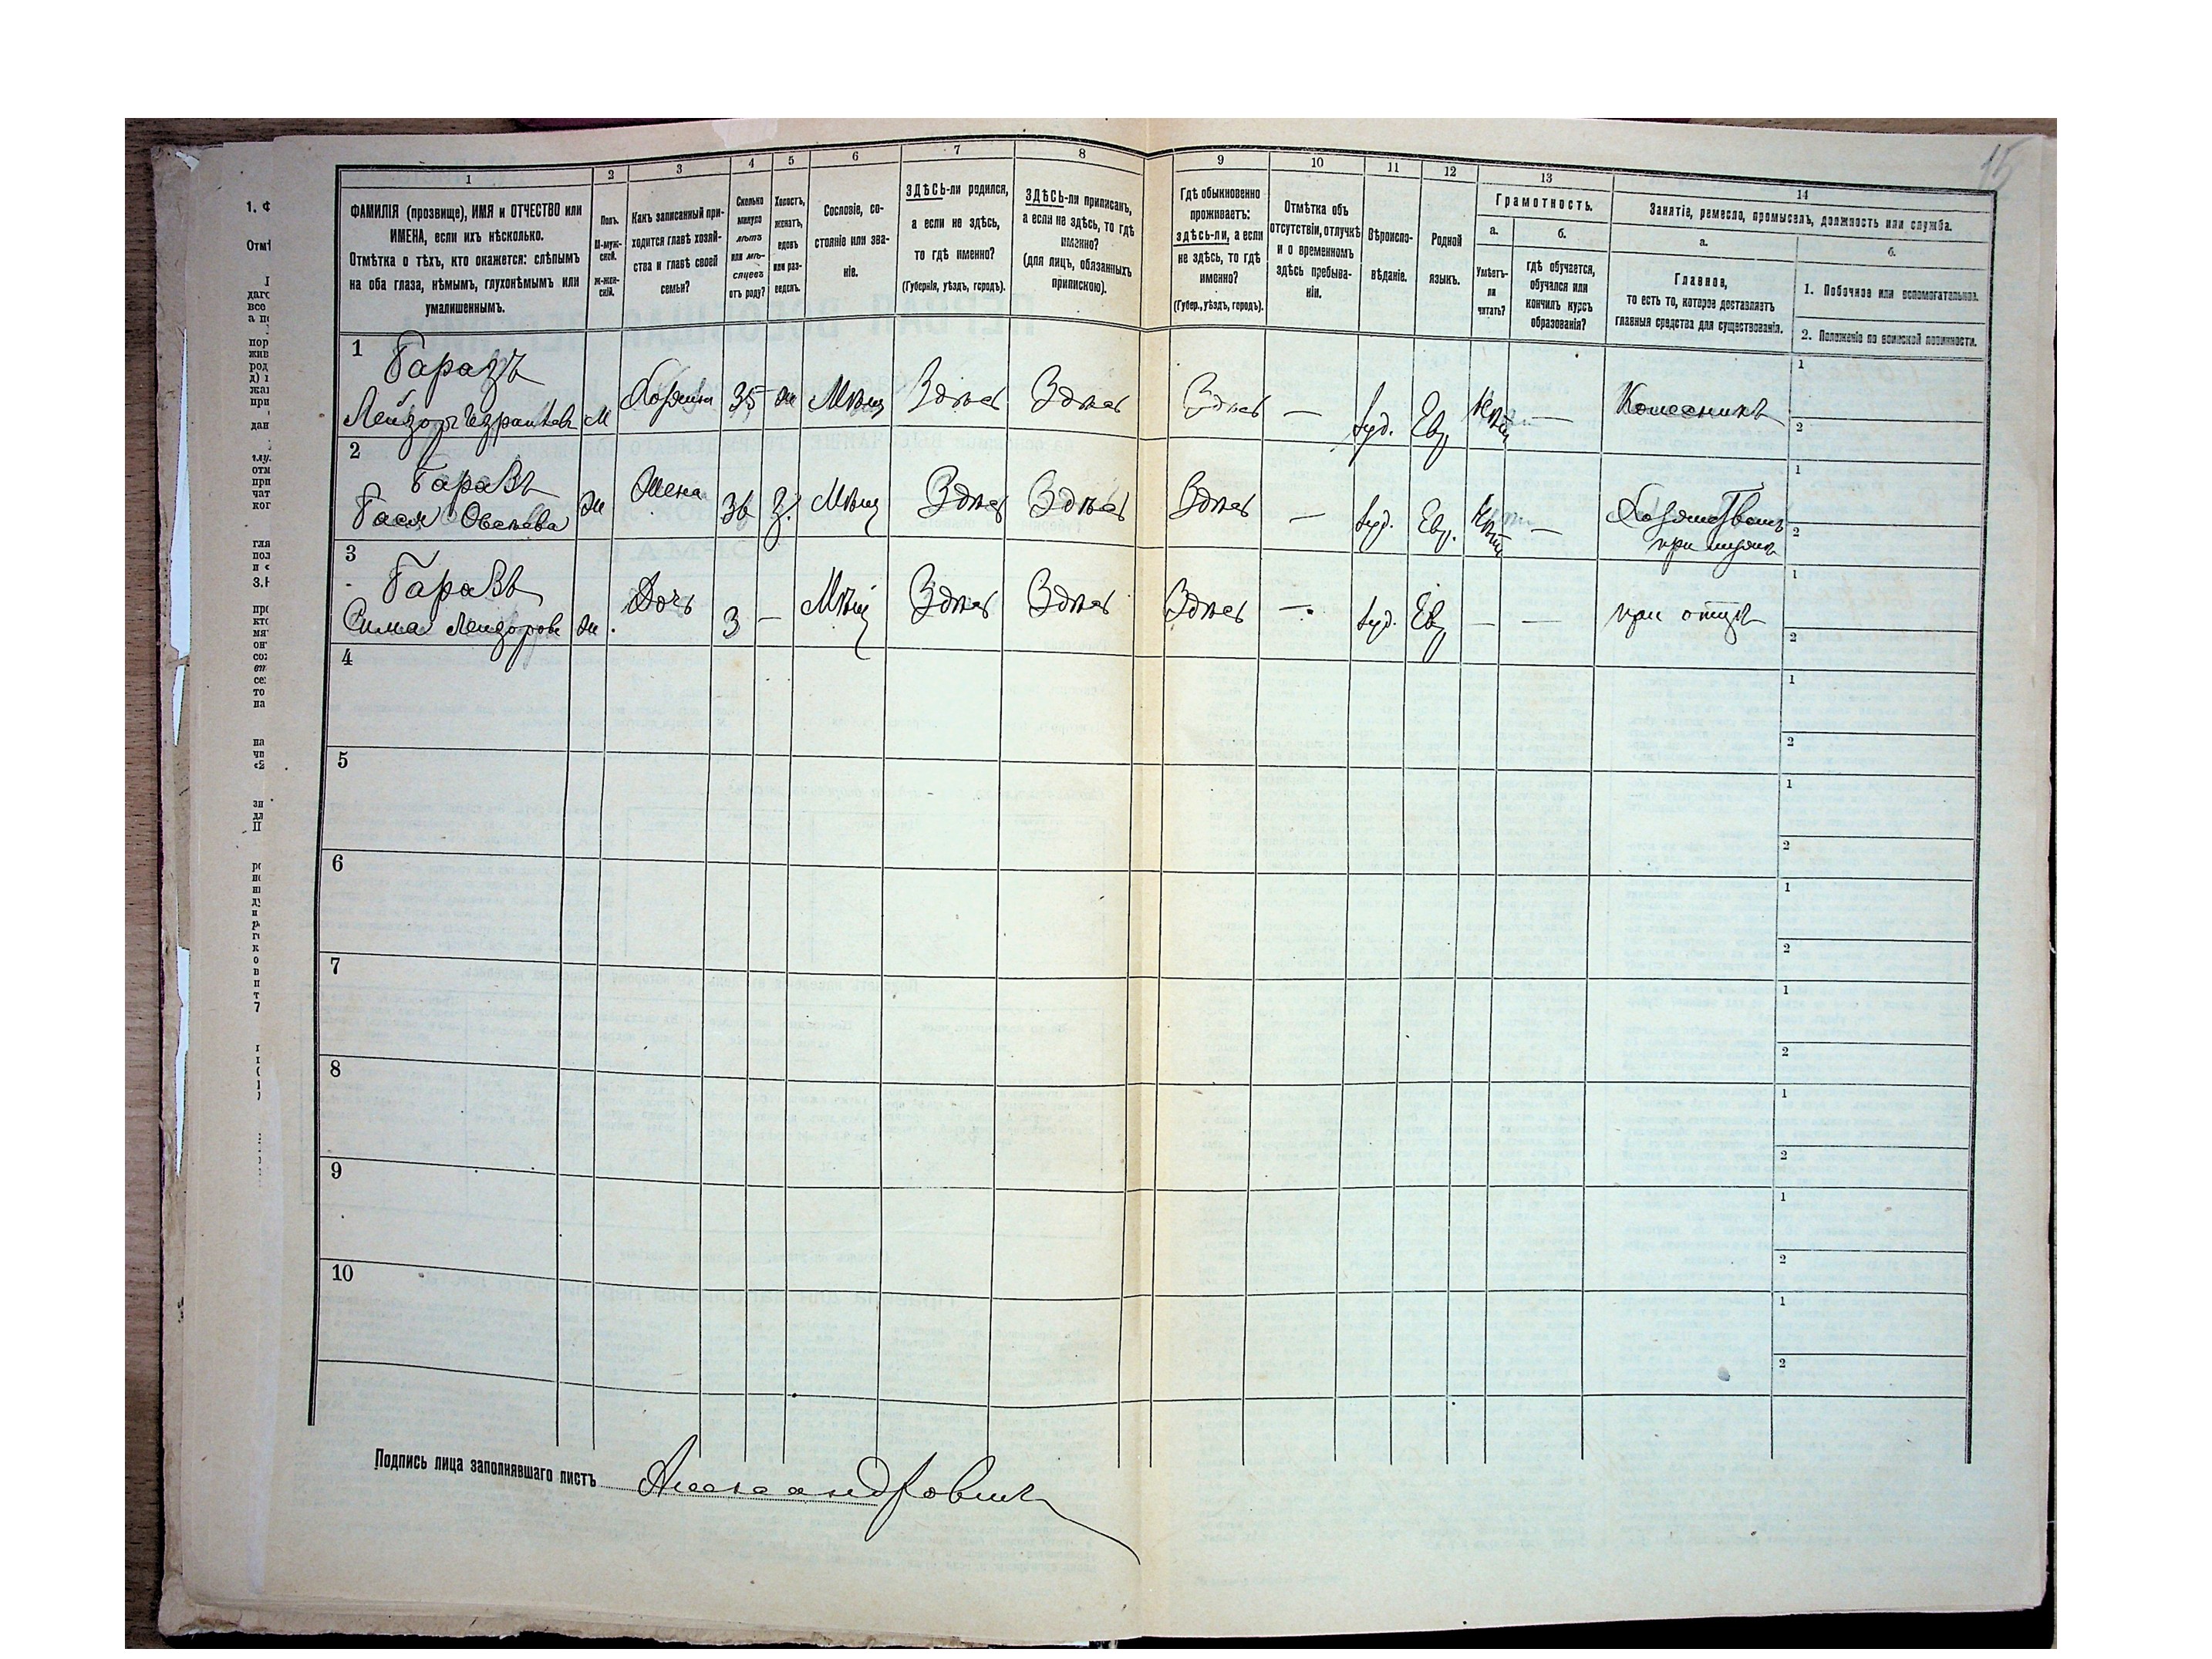 15
1 2 3 4 5 6 7 8 9 10 11 12 13 14
ФАМИЛІЯ (прозвище), ИМЯ и ОТЧЕСТВО или
ИМЕНА, если ихъ нѣсколько.
Отмѣтка о тѣхъ, кто окажется: слѣпымъ
на оба глаза, нѣмымъ, глухонѣмымъ или
умалишеннымъ.
Полъ.
М-муж-
ской.
Ж-жен-
скій.
Какъ записанный при-
ходится главѣ хозяй-
ства и главѣ своей
семьи?
Сколько
минуло
лѣтъ
или мѣ-
сяцевъ
отъ роду?
Холостъ,
женатъ,
вдовъ
или раз-
веденъ.
Сословіе, со-
стояніе или зва-
ніе.
ЗДѢСЬ-ли родился,
а если не здѣсь,
то гдѣ именно?
(Губернія, уѣздъ, городъ).
ЗДѢСЬ-ли приписанъ,
а если не здѣсь, то гдѣ
именно?
(для лицъ, обязанныхъ
припискою).
Гдѣ обыкновенно
проживаетъ:
здѣсь-ли, а если
не здѣсь, то гдѣ
именно?
(Губер., уѣздъ, городъ).
Отмѣтка объ
отсутствіи, отлучкѣ
и о временномъ
здѣсь пребыва-
ніи.
Вѣроиспо-
вѣданіе.
Родной
языкъ.
Грамотность.
а.
Умѣетъ-
ли
читать?
б.
гдѣ обучается,
обучался или
кончилъ курсъ
образованія?
Занятіе, ремесло, промыселъ, должность или служба.
а.
Главное,
то есть то, которое доставляетъ
главныя средства для существованія.
б.
1. Побочное или вспомогательное.
2. Положеніе по воинской повинности.
1 Таразъ
М Хозяинъ 35 ж Мѣщ Здѣсь Здѣсь Здѣсь — Іуд. Евр Нѣтъ — Колесникъ 1 2
2 Таразъ
Тася ж Жена 36 З. Мѣщ Здѣсь Здѣсь Здѣсь — Іуд. Евр. Нѣтъ — 1 2
при мужѣ
3 Таразъ
Сима Лейзоров ж. Дочь 3 — Мѣщ Здѣсь Здѣсь Здѣсь — Іуд. Евр — — при отцѣ 1 2
4 1 2
5 1 2
6 1 2
7 1 2
8 1 2
9 1 2
10 1 2
Подпись лица заполнявшаго листъ Александровичъ